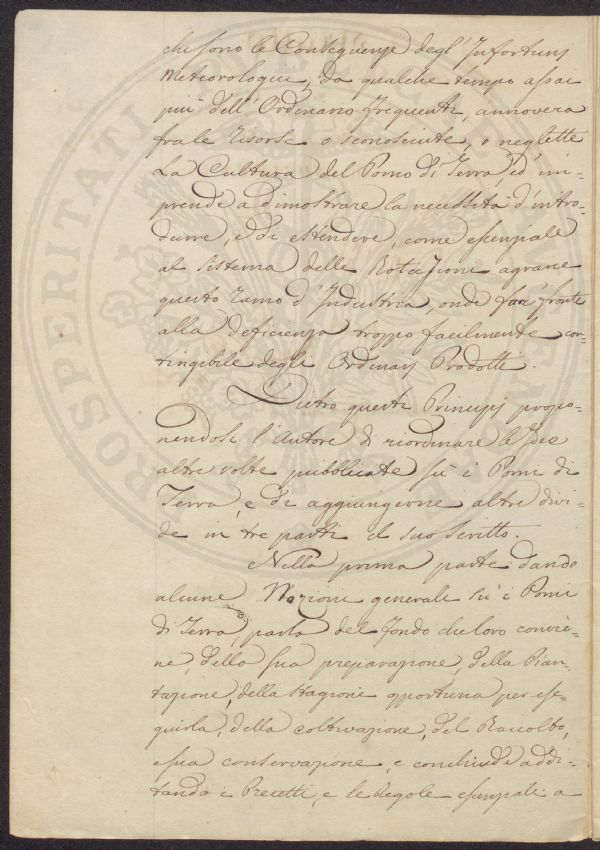 che sono le Conseguenze degl' Infortunj
Meteorologici, da qualche tempo assai
più dell' Ordinario frequenti, annovera
fra le risorse o sconosciute, o neglette
La Cultura del Pomo di Terra, ed im-
prende a dimostrare la necessità d' intro-
durre, e di estendere, come essenziale
al sistema delle Rotazioni agrarie
questo ramo d' Industria, onde far fronte
alla deficienza troppo facilmente con-
tingibile degli Ordinarj Prodotti.
Dietro questi Principj propo-
nendosi l' Autore di riordinare le Idee
altre volte pubblicate su i Pomi di
Terra, e di aggiungervene altre divi-
de in tre parti il suo Scritto.
Nella prima parte dando
alcune Nozioni generali su i Pomi
di Terra, parla del fondo che loro convie-
ne, della sua preparazione, della Pian-
tazione, della stagione opportuna per ese-
guirla, della coltivazione, del Raccolto,
e sua conservazione, e conchiude addi-
tando i Precetti, e le Regole essenziali a
PROSPERITATI